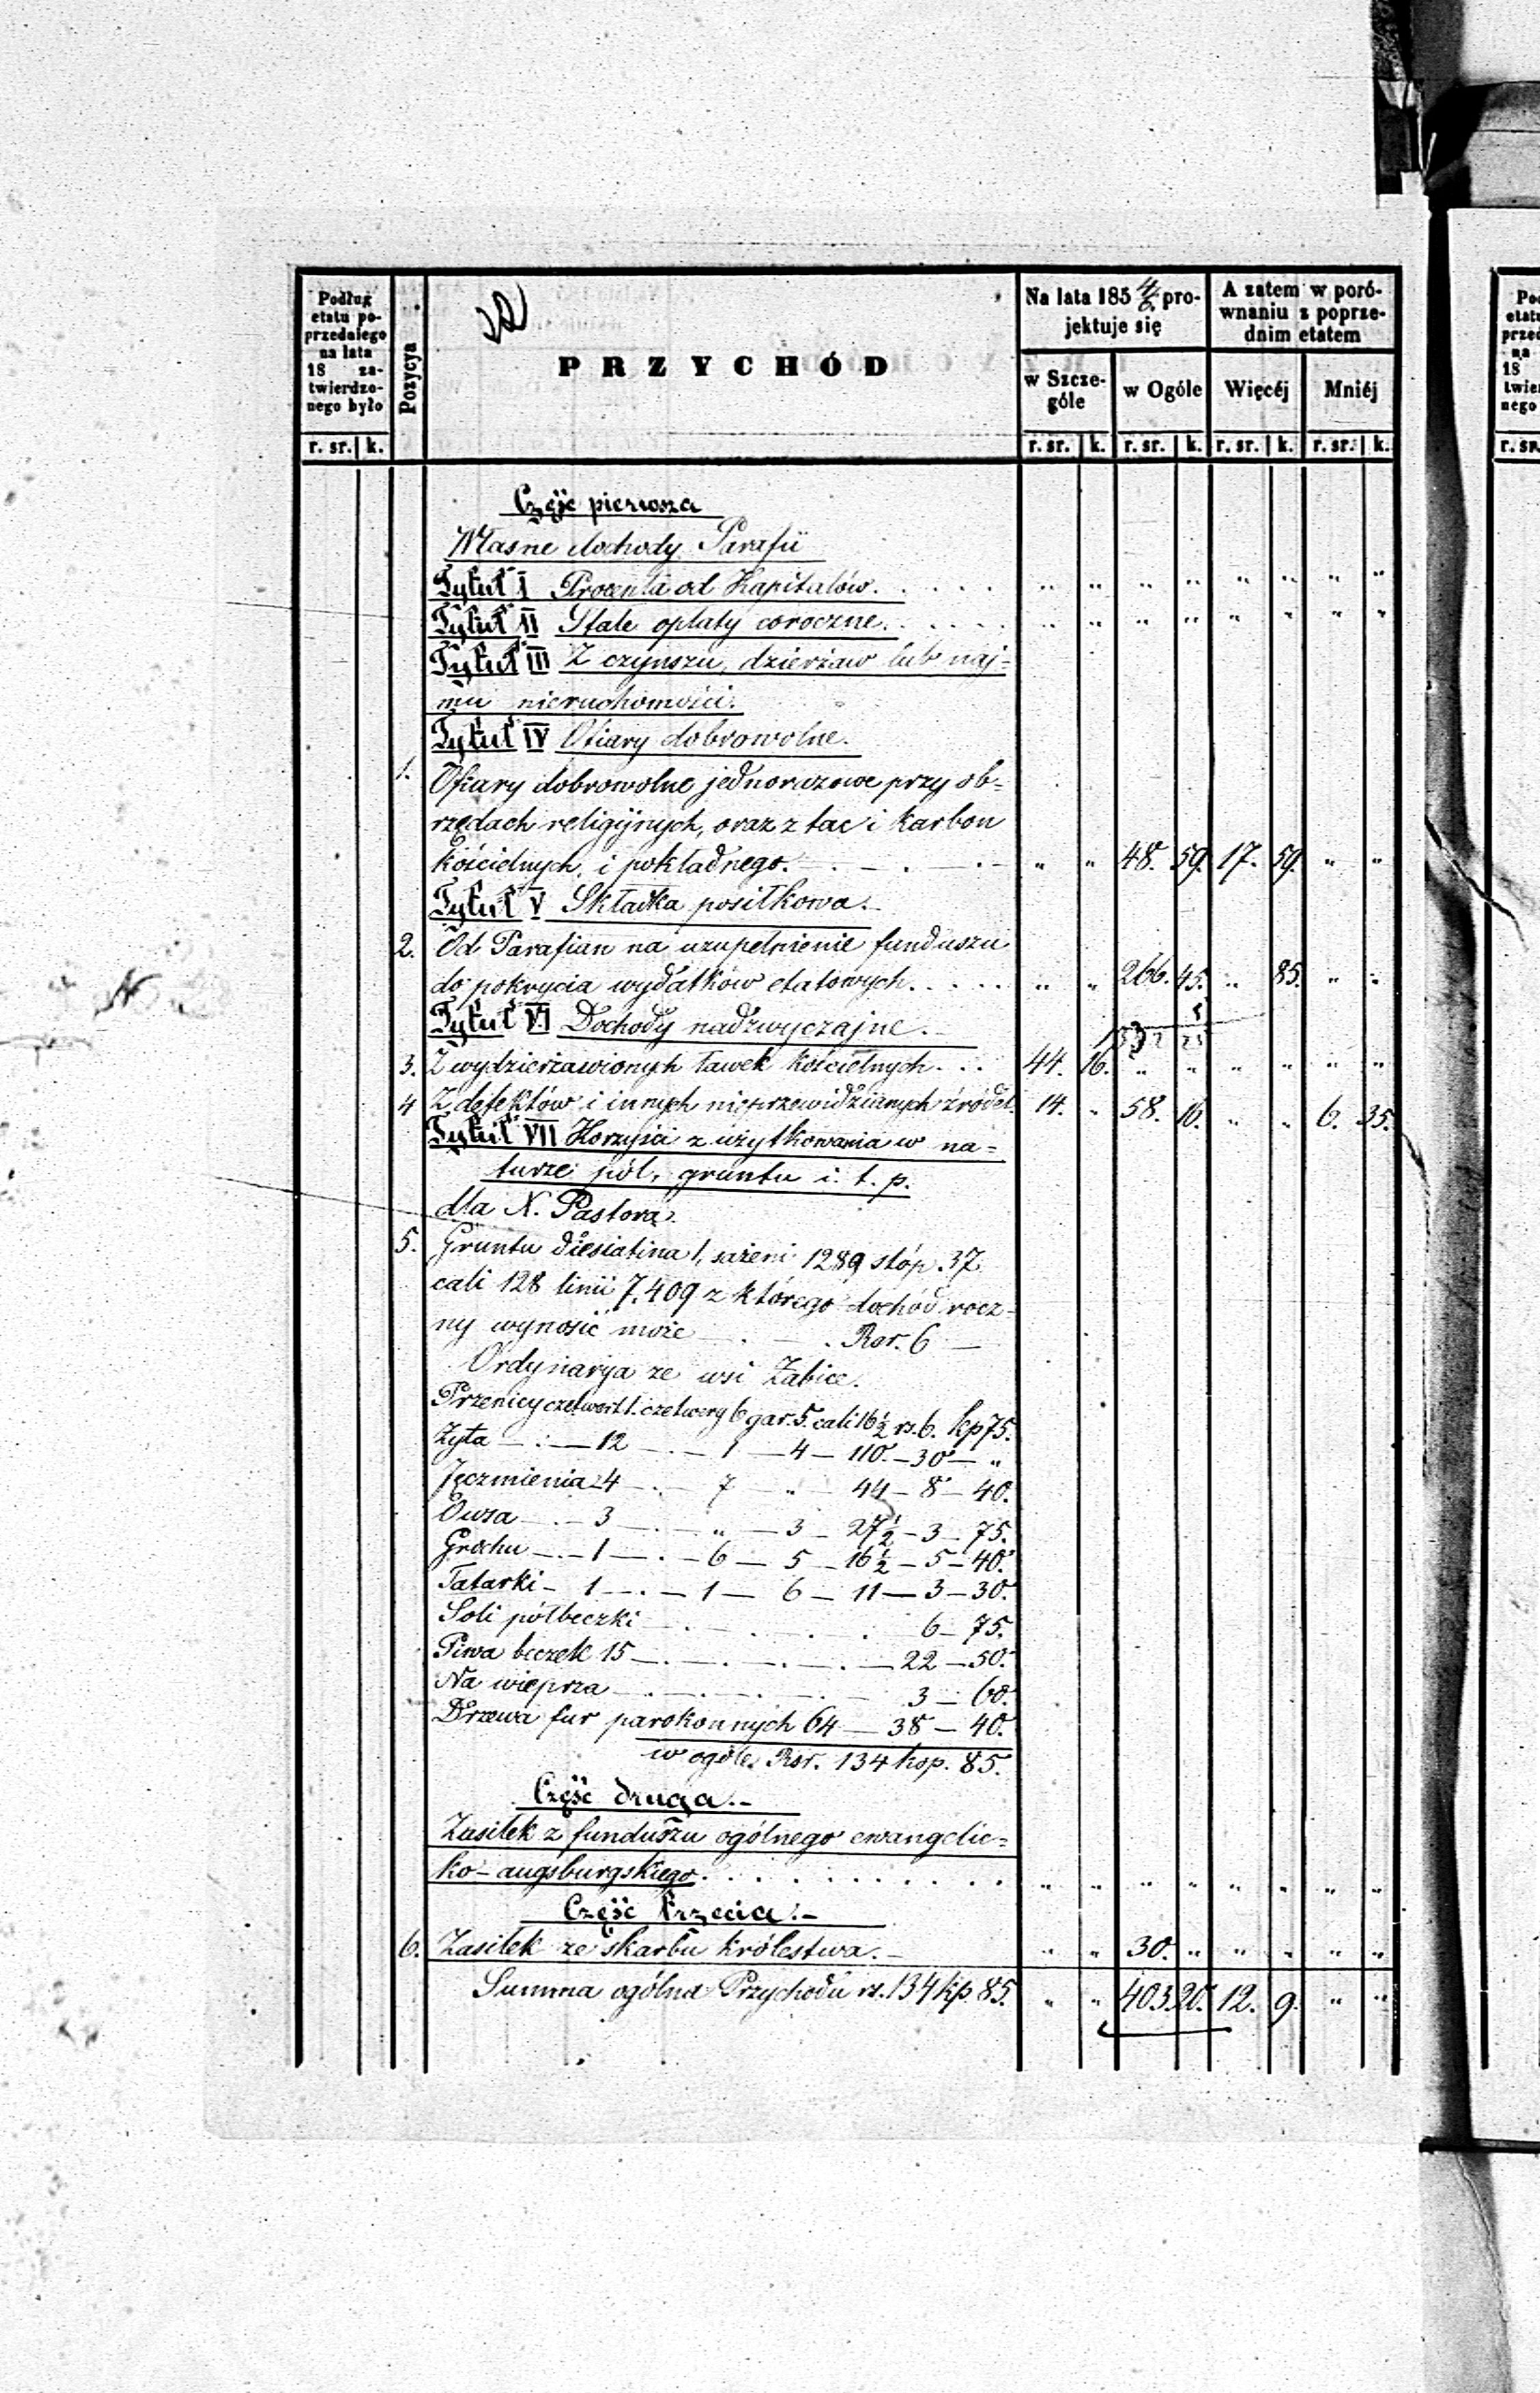 Podług
etatu po-
przedniego
na lata
18 za-
twierdzo-
nego było
r. sr. k.
Pozycya
PRZYCHÓD
Na lata 185 4/6 pro-
jektuje się
w Szcze-
góle
w Ogóle
r. sr. k. r. sr. k.
A zatem w poró-
wnaniu z poprze-
dnim etatem
Więcéj Mniéj
r. sr. k. r. sr. k.
Część pierwsza
Własne dochody Parafii
Tytuł I Procenta od Kapitałów. . . . . " " " " " " " "
Tytuł II Stałe opłaty coroczne. . . . . " " " " " " " "
Tytuł III Z czynszu, dzierżaw lub naj=
mu nieruchomości.
Tytuł IV Ofiary dobrowolne.
1. Ofiary dobrowolne jednorazowe przy ob=
rzędach religijnych, oraz z tac i karbon
kościelnych, i pokładnego. " " 48. 59. 17. 59. " "
Tytuł V Składka posiłkowa.
2. Od Parafian na uzupełnienie funduszu
do pokrycia wydatków etatowych. . . . . " " 266. 45. " 85. " "
Tytuł VI Dochody nadzwyczajne.
3. Z wydzierżawionych ławek kościelnych. . . 44. 16. " " " " " "
4 Z defektów i innych nieprzewidzianych źródeł. 14. " 58. 16. " " 6. 35.
Tytuł VII Korzyści z użytkowania w na=
turze pól, gruntu i. t. p.
dla X. Pastora.
5. Gruntu diesiatina 1, sażeni 1289 stóp. 37
cali 128 linii 7.409 z którego dochód rocz=
ny wynosić może Rsr. 6 —
Ordynarya ze wsi Żabice.
Przenicy czetwert 1. czetwery 6 gar. 5. cali 16 1/2 rs. 6. kp 75.
Żyta — 12 — 1 — 4 — 110. — 30 — "
Jęczmienia 4 — 7 — " — 44 — 8 — 40.
Owsa — 3 — " — 3 — 27 1/2 — 3 — 75.
Grochu — 1 — 6 — 5 — 16 1/2 — 5 — 40.
Tatarki — 1 — 1 — 6 — 11 — 3 — 30.
Soli półbeczki 6 — 75.
Piwa beczek 15 — 22 — 50.
Na wieprza 3 — 60.
Drzewa fur parokonnych 64 — 38 — 40.
w ogóle. Rsr. 134 kop. 85.
Część druga.
Zasiłek z funduszu ogólnego ewangelic=
ko-augsburgskiego. . . . . . . . . " " " " " " " "
Część trzecia.
6. Zasiłek ze skarbu Królestwa. " " 30. " " " " "
Summa ogólna Przychodu rs. 134 kp. 85. " " 403. 20. 12. 9. " "
Pod
etatu
przed
na
18
twier
nego
r. sr.